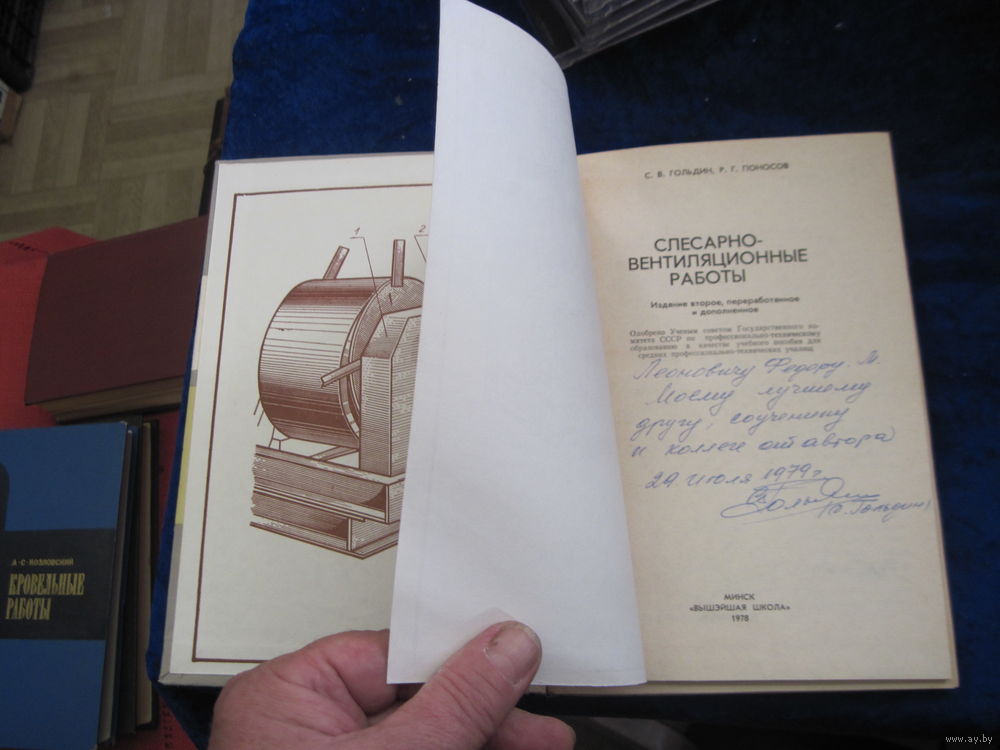 С. В. ГОЛЬДИН, Р. Г. ПОНОСОВ
СЛЕСАРНО-
ВЕНТИЛЯЦИОННЫЕ
РАБОТЫ
Издание второе, переработанное
и дополненное
Одобрено Ученым советом Государственного ко-
митета СССР по профессионально-техническому
образованию в качестве учебного пособия для
средних профессионально-технических училищ
Леоновичу Федору М.
Моему лучшему
другу, соученику
и коллеге от автора
29 июля 1979 г.
(С. Гольдин)
МИНСК
«ВЫШЭЙШАЯ ШКОЛА»
1978
1
2
А·С·КОЗЛОВСКИЙ
КРОВЕЛЬНЫЕ
РАБОТЫ
www.ay.by